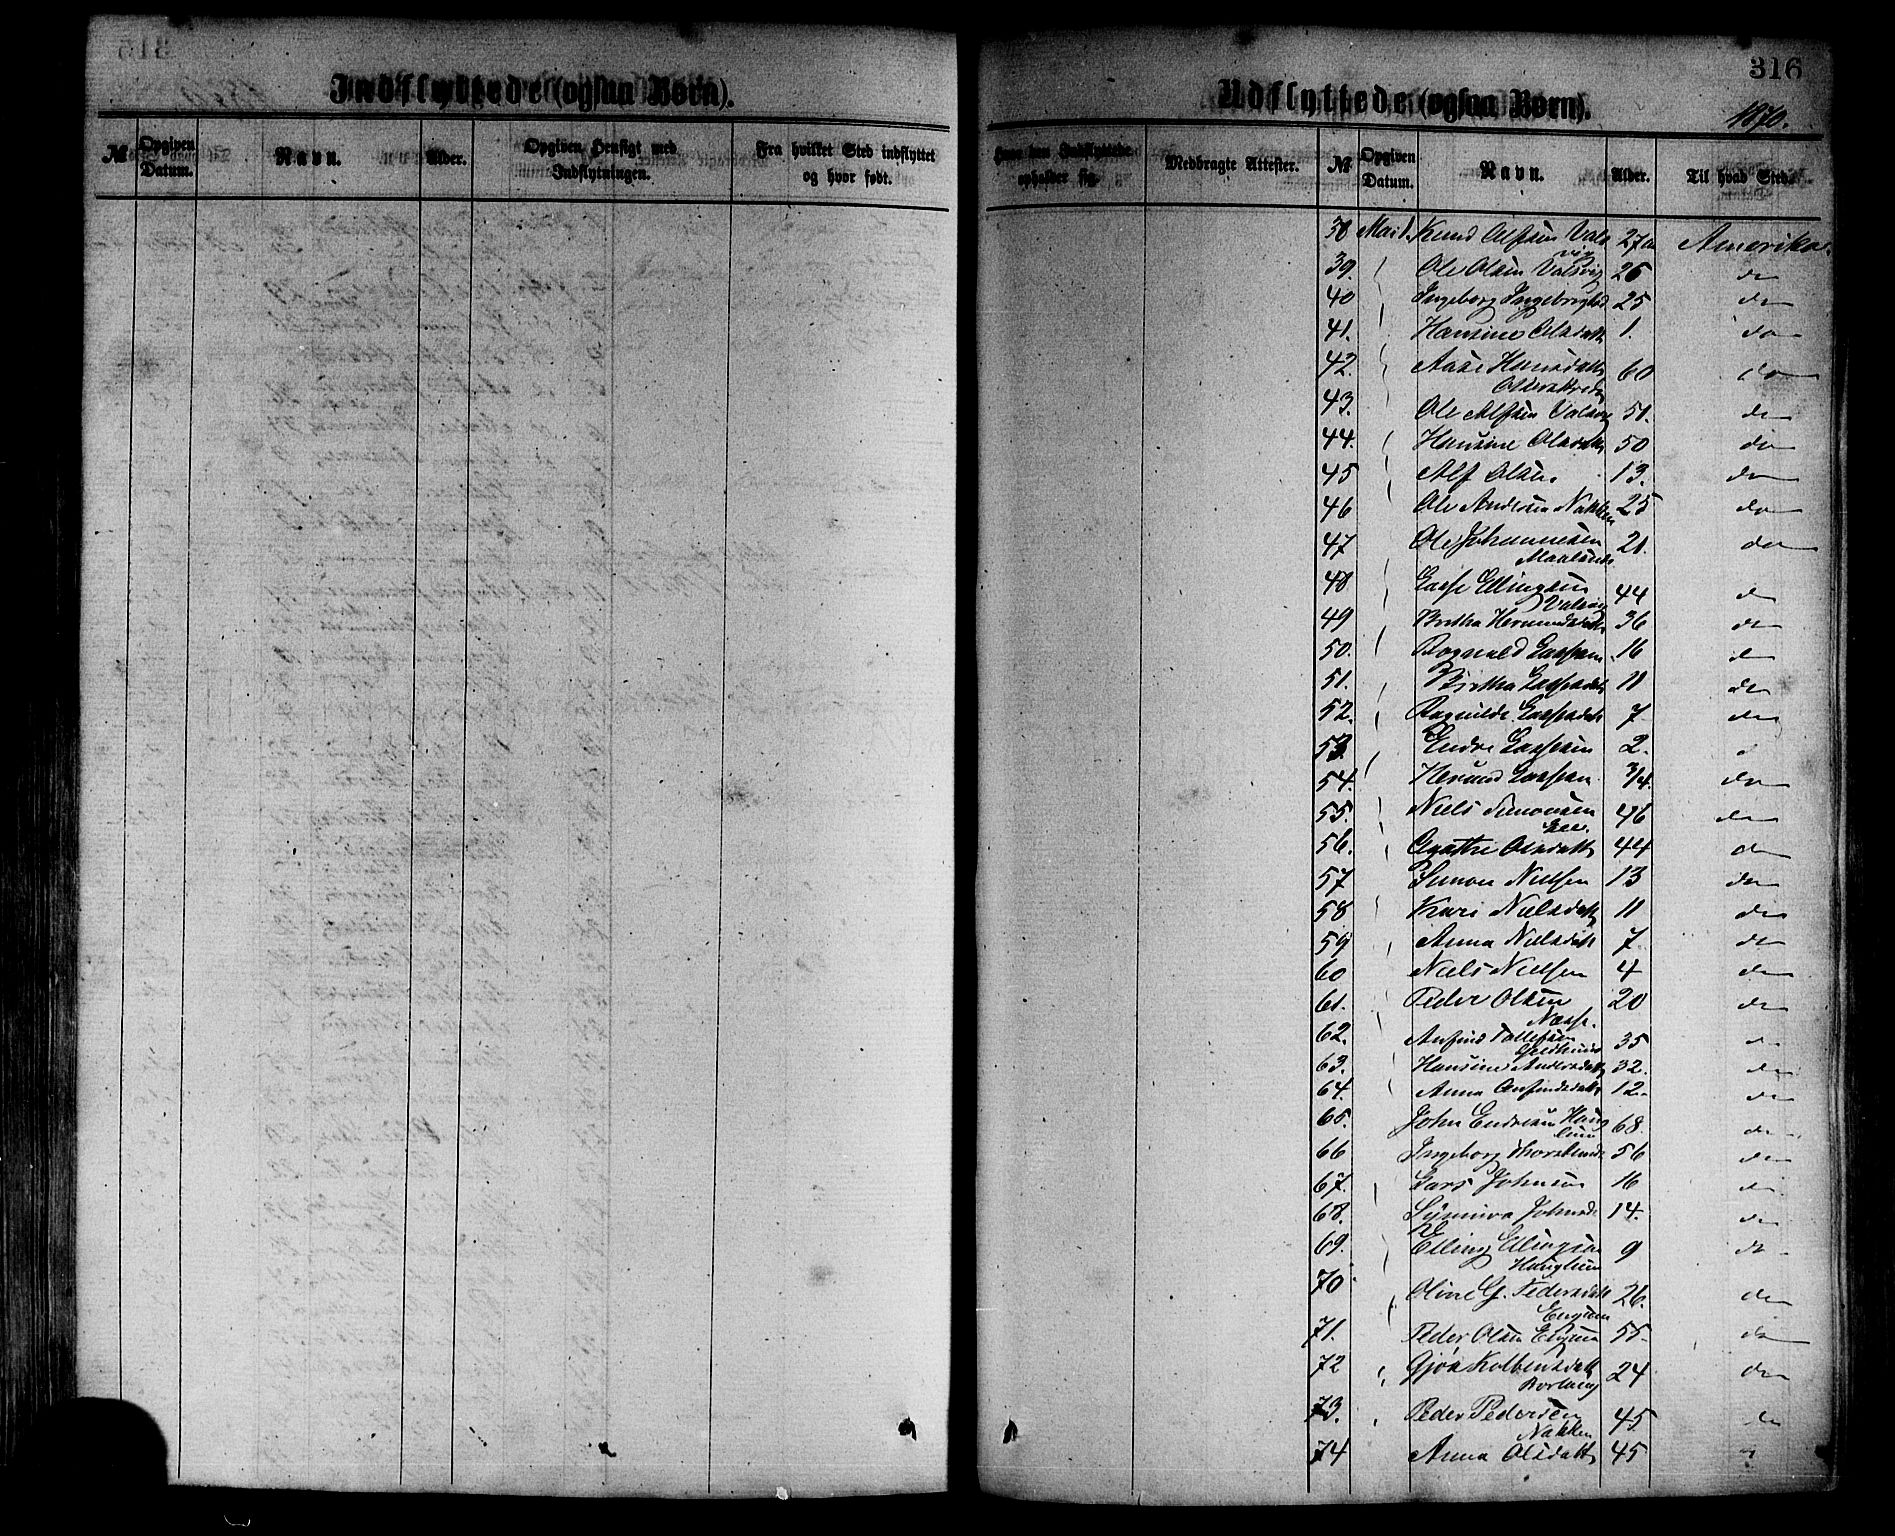 316
Indflyttede (ogsaa Børn).
№ Opgiven Datum. Navn. Alder. Opgiven Hensigt med Indflytningen. Fra hvilket Sted indflyttet og hvor født.
Udflyttede (ogsaa Børn).
1870.
Hvor den Indflyttede opholder sig. Medbragte Attester. № Opgiven Datum. Navn. Alder. Til hvad Sted.
38 Mai 1. Knud Alfsen Vals 27 Amerika.
vig
39. Ole Olsen Valsvig 26 do
40 Ingeborg Ingebrigtsd 25 do
41. Hansine Olsdatt 1. do
42. Aase Hansdatt 60 do
43. Ole Alfsen Valsvig 51. do
44. Hansine Olsdatt 50 do
45 Alf Olsen 13. do
46 Ole Andersen Nakken 25 do
47 Ole Johannesen 21. do
48 Lasse Ellingsen 44 do
Valsvig
49 Britha Hermundsdatt 36 do
50. Rognald Lassesen 16 do
51. Britha Lassesdatt 11 do
52. Ragnilde Lassesdatt 7 do
53. Endre Lassesen 2.
54. Herund Lassesen 3/4. do
55. Niels Simonsen 46 do
56. Agathe Olsdatt 44 do
57 Simon Nielsen 13 do
58 Kari Nielsdatt 11 do
59 Anna Nielsdatt 7 do
60 Niels Nielsen 4 do
61. Peder Olsen 20 do
Næsse.
62. Anfind Tollefsen 35 do
63. Hansine Andersdatt 32. do
64. Anna Anfindsdatt 12. do
65. John Endresen Haug 68. do
66 Ingeborg 56 do
67. Lars Johnsen 16 do
68. Synneva Johnsd 14. do
69. Elling Ellingsen 9 do
70 Oline G. Pedersdatt 26. do
Engum
71. Peder Olsen Engum 55. do
72 Gjøa Kolbensdatt 24 do
73. Peder Pedersen 45. do
Nakken
74 Anna Olsdatt 45